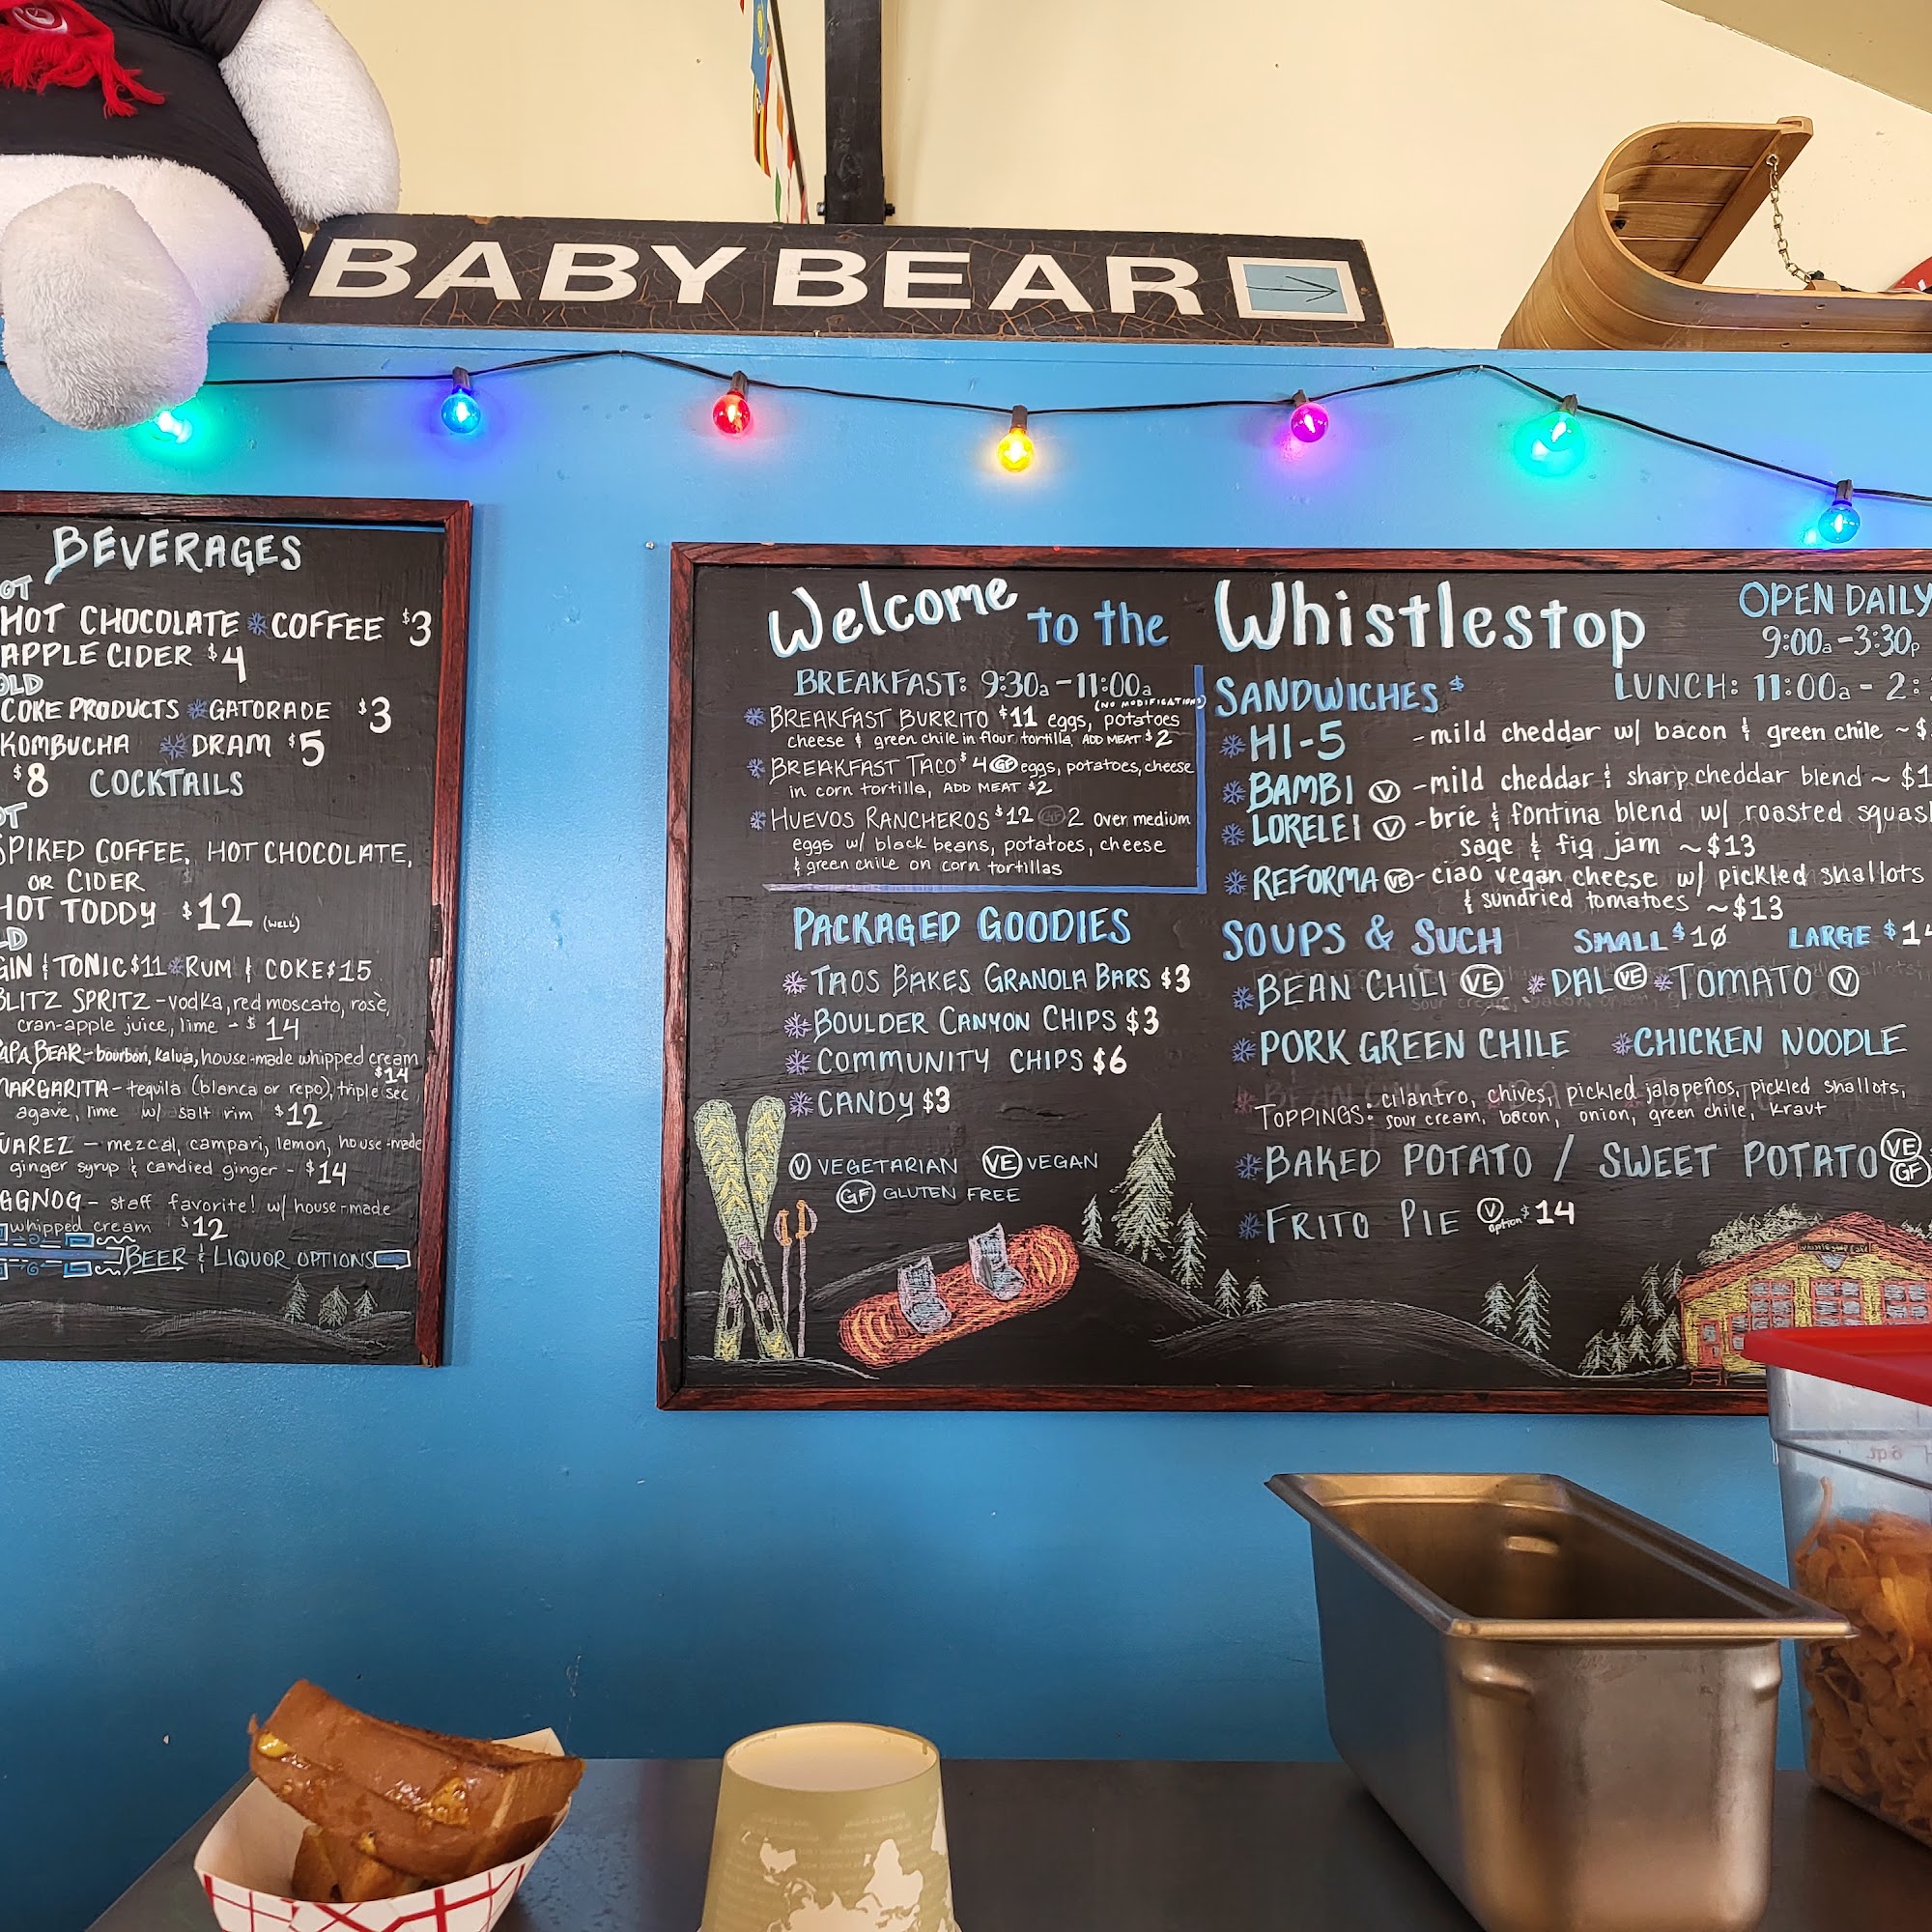 BABY BEAR
BEVERAGES
OT
HOT CHOCOLATE COFFEE $3
APPLE CIDER $4
OLD
COKE PRODUCTS GATORADE $3
KOMBUCHA DRAM $5
$8 COCKTAILS
OT
SPIKED COFFEE, HOT CHOCOLATE,
OR CIDER
HOT TODDY $12 (WELL)
LD
GIN & TONIC $11 RUM & COKE $15
BLITZ SPRITZ - vodka, red moscato, rosè,
cran-apple juice, lime - $14
APA BEAR - bourbon, kalua, house-made whipped cream
$14
MARGARITA - tequila (blanca or repo), triple sec
agave, lime w/ salt rim $12
UAREZ - mezcal, campari, lemon, house-made
ginger syrup & candied ginger - $14
GGNOG - staff favorite! w/ house-made
whipped cream $12
BEER & LIQUOR OPTIONS
Welcome to the Whistlestop
OPEN DAILY
9:00a-3:30p
BREAKFAST: 9:30a-11:00a
(NO MODIFICATIONS)
BREAKFAST BURRITO $11 eggs, potatoes
cheese & green chile in flour tortilla, ADD MEAT $2
BREAKFAST TACO $4 GF eggs, potatoes, cheese
in corn tortilla, ADD MEAT $2
HUEVOS RANCHEROS $12 GF 2 over medium
eggs w/ black beans, potatoes, cheese
& green chile on corn tortillas
PACKAGED GOODIES
TAOS BAKES GRANOLA BARS $3
BOULDER CANYON CHIPS $3
COMMUNITY CHIPS $6
CANDY $3
V VEGETARIAN VE VEGAN
GF GLUTEN FREE
SANDWICHES $
LUNCH: 11:00a - 2:
HI-5 - mild cheddar w/ bacon & green chile ~ $
BAMBI V - mild cheddar & sharp cheddar blend ~ $1
LORELEI V - brie & fontina blend w/ roasted squash
sage & fig jam ~ $13
REFORMA VE - ciao vegan cheese w/ pickled shallots
& sundried tomatoes ~ $13
SOUPS & SUCH SMALL $10 LARGE $14
BEAN CHILI VE DAL VE TOMATO V
PORK GREEN CHILE CHICKEN NOODLE
TOPPINGS: cilantro, chives, pickled jalapeños, pickled shallots,
sour cream, bacon, onion, green chile, kraut
BAKED POTATO / SWEET POTATO VE GF
FRITO PIE V option $14